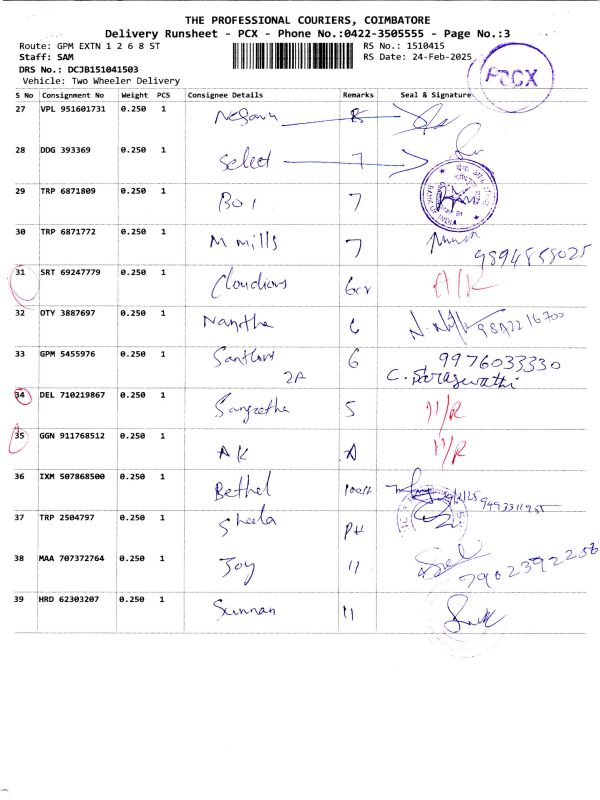 THE PROFESSIONAL COURIERS, COIMBATORE
Delivery Runsheet - PCX - Phone No.:0422-3505555 - Page No.:3
Route: GPM EXTN 1 2 6 8 ST RS No.: 1510415
Staff: SAM RS Date: 24-Feb-2025
DRS No.: DCJB151041503
Vehicle: Two Wheeler Delivery
PCX
S No Consignment No Weight PCS Consignee Details Remarks Seal & Signature
27 VPL 951601731 0.250 1
28 DDG 393369 0.250 1 Select 7
29 TRP 6871809 0.250 1 BOI 7
30 TRP 6871772 0.250 1 M mills 7 9894858025
31 SRT 69247779 0.250 1
32 OTY 3887697 0.250 1 Nantha 6 9842216700
33 GPM 5455976 0.250 1 6 9976033330
2A C. Saraswathi
34 DEL 710219867 0.250 1 Sangeetha 5
35 GGN 911768512 0.250 1 AK A
36 IXM 507868500 0.250 1 Bethel 100ft
37 TRP 2504797 0.250 1 Sheela PH
38 MAA 707372764 0.250 1 Joy 11
39 HRD 62303207 0.250 1 Sunnan 11